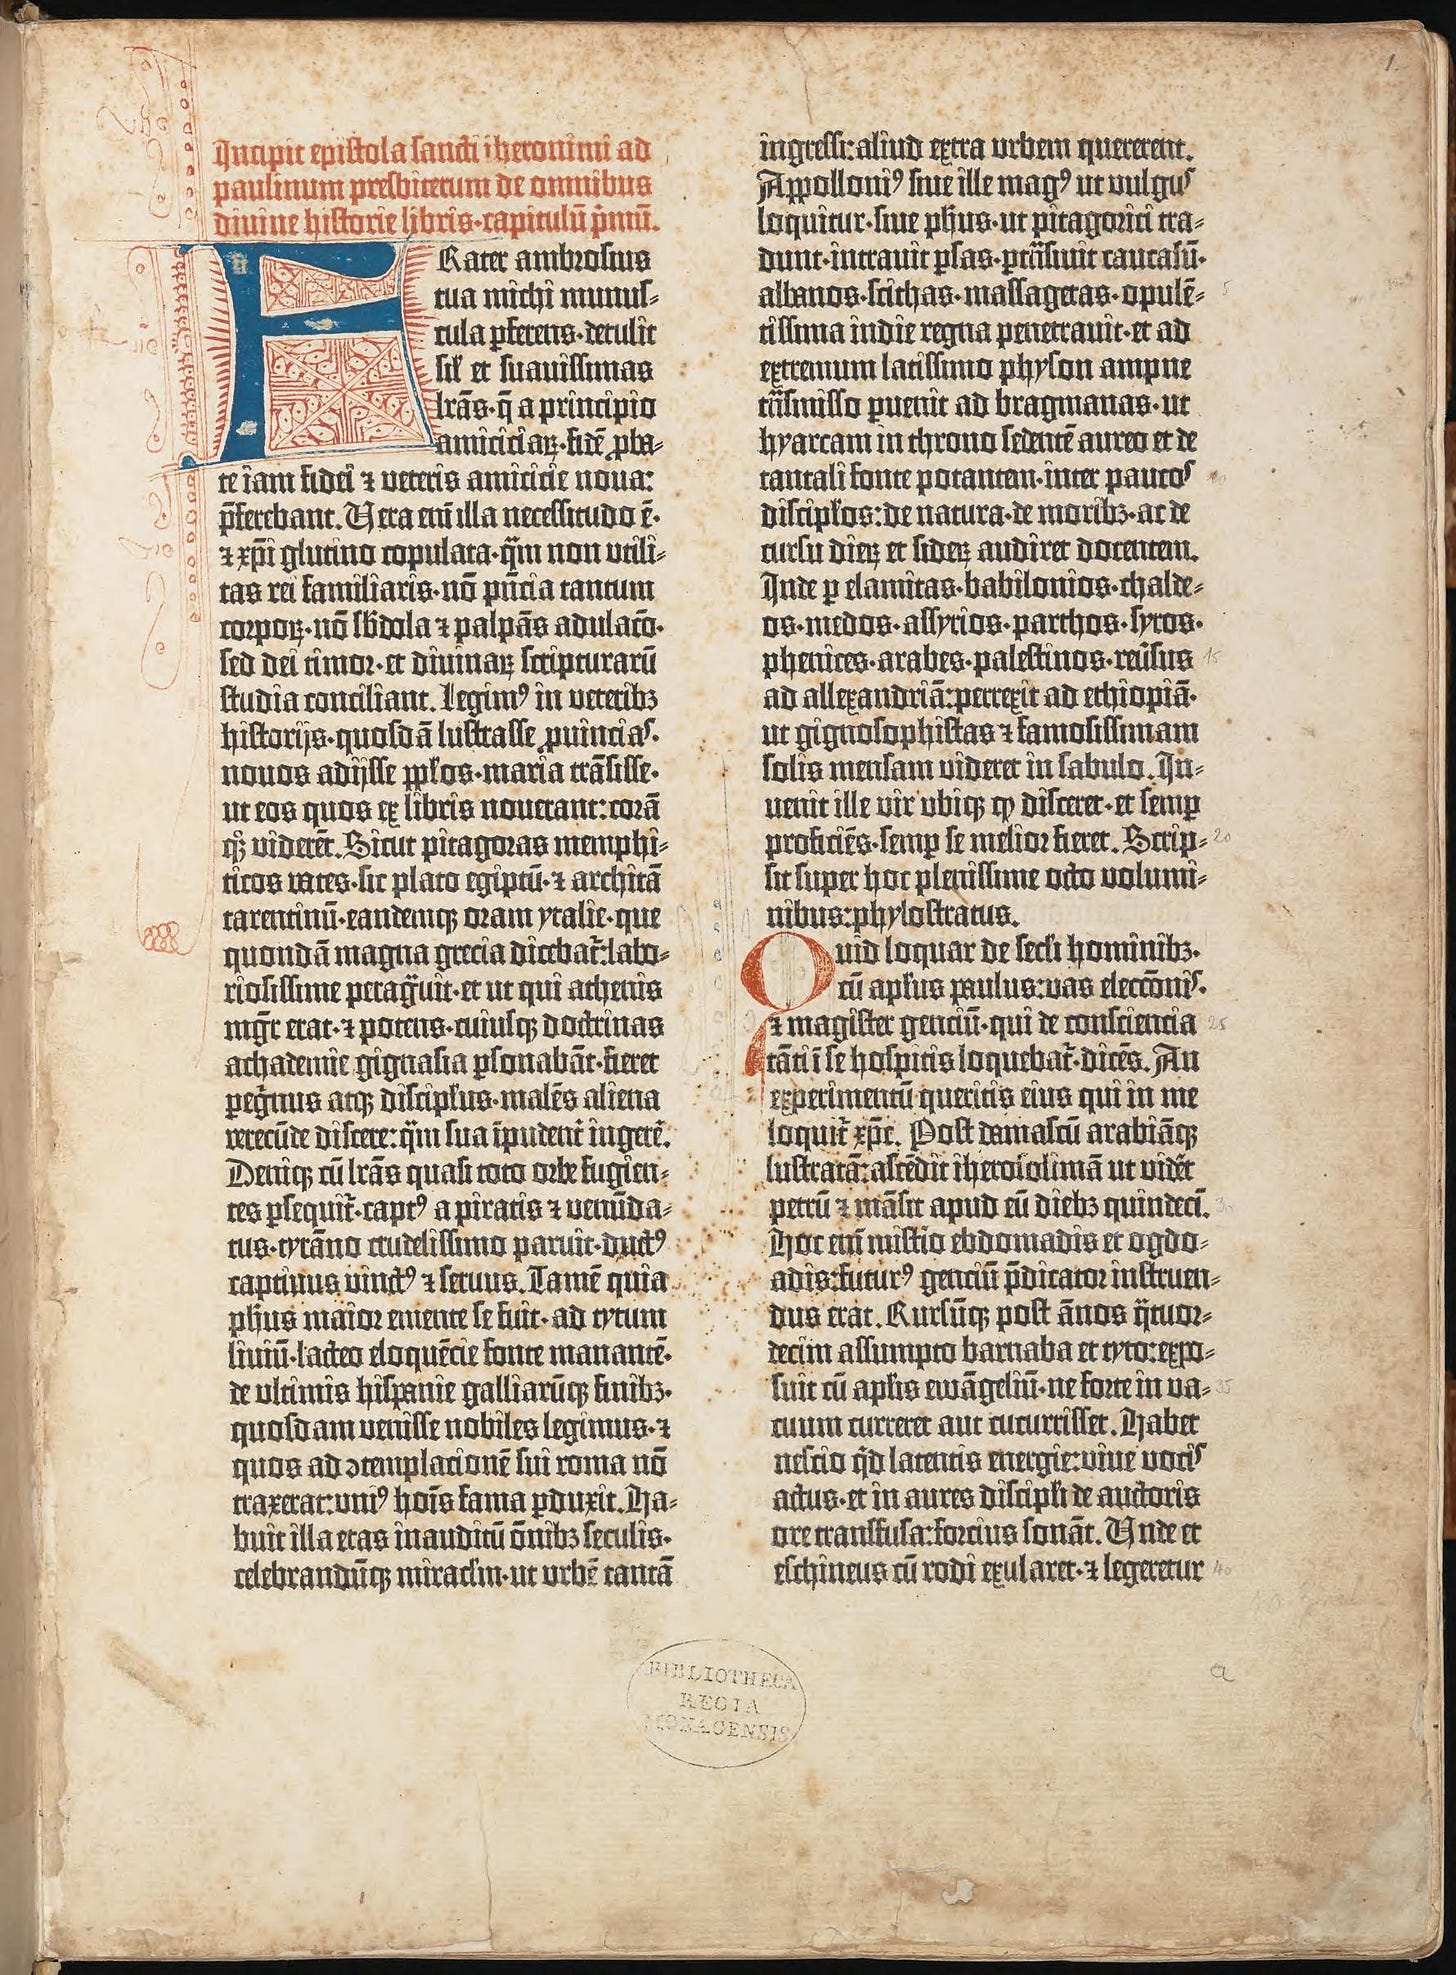 Incipit epistola sancti iheronimi ad
paulinum presbiterum de omnibus
divine historie libris·capitulū p̄mū.
FRater ambrosius
tua michi munus-
cula ꝑferens·detulit
sil̄ et suavissimas
lr̄as·q̄ a principio
amiciciaꝝ·fidē ꝓba-
te iam fidei ⁊ veteris amicicie nova:
p̄ferebant. Vera enī illa necessitudo ē·
⁊ xp̄i glutino copulata·q̄m non utili-
tas rei familiaris·nō pn̄cia tantum
corpoꝝ·nō sb̄dola ⁊ palpās adulacō·
sed dei timor·et divinaꝝ scripturarū
studia conciliant. Legimꝰ in veteribꝫ
historijs·quosdā lustrasse ꝓvincias·
novos adijsse pp̄los·maria trāsisse·
ut eos quos ex libris noverant: corā
qꝫ viderēt. Sicut pitagoras memphi-
ticos vates·sic plato egiptū·⁊ architā
tarentinū·eandemqꝫ oram ytalie·que
quondā magna grecia dicebat᷑: labo-
riosissime peragͣvit·et ut qui athenis
mgr̄ erat·⁊ potens·cuiusqꝫ doctrinas
achademie gignasia ꝑsonabāt·fieret
peg̊nus atqꝫ discipl̄us·malēs aliena
verecūde discere: q̄m sua īpudent᷑ ingerē.
Deniqꝫ cū lr̄as quasi toto orbe fugien-
tes ꝑsequit᷑·captꝰ a piratis ⁊ venūda-
tus·tyrāno crudelissimo paruit·ductꝰ
captivus vinctꝰ ⁊ servus. Tamē quia
ph̄us maior emente se fuit·ad tytum
liviū·lacteo eloquēcie fonte manantē·
de ultimis hispanie galliarūqꝫ finibꝫ·
quosdam venisse nobiles legimus·⁊
quos ad ↄtemplacionē sui roma nō
traxerat: unīꝰ hoīs fama ꝑduxit. Ha-
buit illa etas inauditū ōnibꝫ seculis·
celebrandūqꝫ miraclm̄·ut urbē tantā
ingressi: aliud extra urbem quererent.
Appollonīꝰ sive ille magꝰ ut vulgus
loquitur·sive ph̄us·ut pitagorici tra-
dunt·intravit ꝑsas·ꝑtrāsivit caucasū·
albanos·scithas·massagetas·opulē-
tissima indie regna penetravit·et ad
extremum latissimo physon ampne
trāsmisso ꝑvenit ad bragmanas·ut
hyarcam in throno sedentē aureo et de
tantali fonte potantem·inter paucos
discipl̄os: de natura·de moribꝫ·ac de
cursu dieꝝ et sideꝝ audiret docentem.
Inde ꝑ elamitas·babilonios·chalde-
os·medos·assyrios·parthos·syros·
phenices·arabes·palestinos·rev̄sus
ad allexandriā: perrexit ad ethiopiā·
ut gignosophistas ⁊ famosissimam
solis mensam videret in sabulo. In-
venit ille vir ubiqꝫ qͦ disceret·et semꝑ
proficiēs·semꝑ se melior fieret. Scrip-
sit super hoc plenissime octo volumi-
nibus: phylostratus.
Quid loquar de secl̄i hominibꝫ·
cū apl̄us paulus: vas eleccōnis·
⁊ magister genciū·qui de consciencia
tāti ī se hospitis loquebat᷑·dicēs. An
experimentū queritis eius qui in me
loquit᷑ xp̄c. Post damascū arabiāqꝫ
lustratā: ascēdit iherosolimā ut vidēt
petrū ⁊ māsit apud eū diebꝫ quindecī.
Hoc enī misterio ebdomadis et ogdo-
adis: futurꝰ genciū p̄dicator instruen-
dus erat. Rursūqꝫ post ānos q̈tuor-
decim assumpto barnaba et tyto: expo-
suit cū apl̄is ewāgeliū·ne forte in va-
cuum curreret aut cucurrisset. Habet
nescio q̄d latentis energie: vive vocis
actus·et in aures discipl̄i de auctoris
ore transfusa: forcius sonāt. Unde et
eschineus cū rodi exularet·⁊ legeretur
1.
5
15
20
25
35
40
a
BIBLIOTHECA
REGIA
MONACENSIS